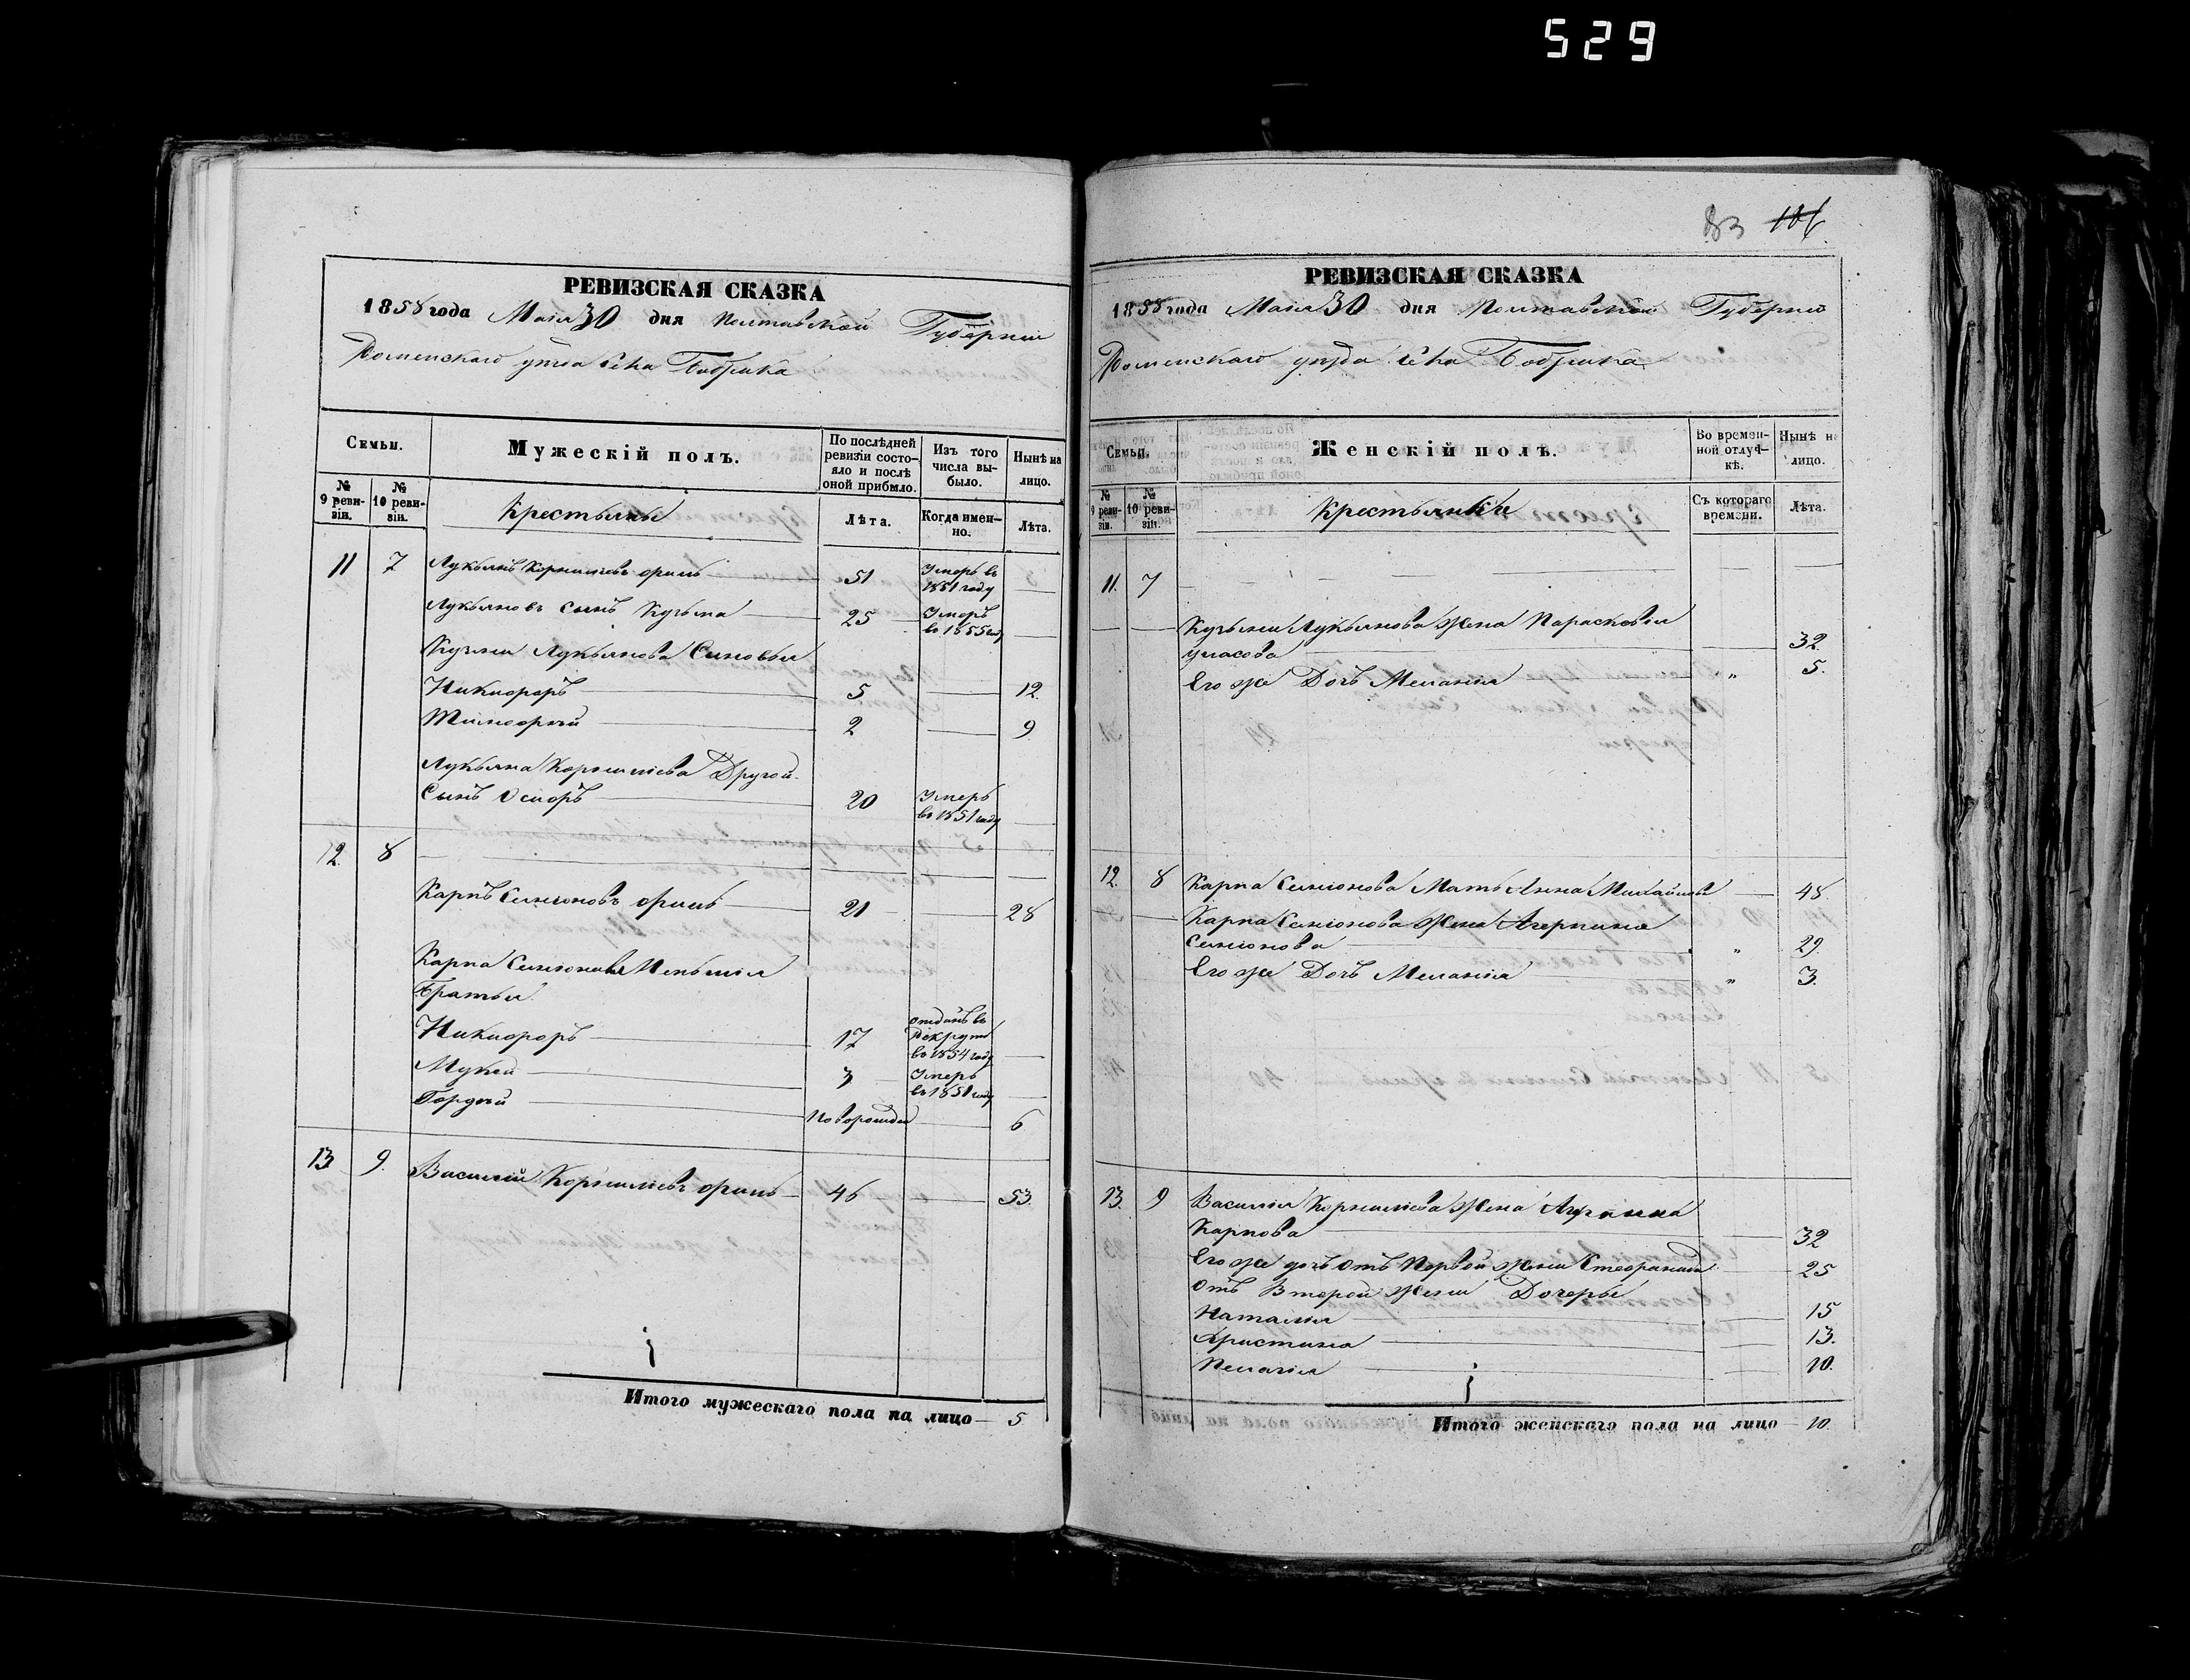 529
РЕВИЗСКАЯ СКАЗКА
1858 года Маія 30 дня Полтавской Губерніи
Роменскаго уѣзда села Бобрика
Семьи.
Мужескій полъ.
По послѣдней ревизіи состояло и послѣ оной прибыло.
Изъ того числа выбыло.
Нынѣ на лицо.
№ 9 ревизіи.
№ 10 ревизіи.
Крестьяне
Лѣта.
Когда именно.
Лѣта.
11 7 Лукьянъ Корніліевъ 51 Умеръ въ 1851 году
Лукьяновъ сынъ Кузьма 25 Умеръ въ 1855 году
Кузьмы Лукьянова Сыновья
Никифоръ 5 12.
Тимофѣй 2 9
Лукьяна Корниліева Другой
Сынъ 20 Умеръ въ 1851 году
12. 8
Карпъ Симіоновъ 21 28
Карпа Симіонова Меньшія
Братья
Никифоръ 17 отданъ въ рекруты въ 1854 году
Мукей 3 Умеръ въ 1851 году
Гордѣй Новорожден 6
13 9. Василій Корниліевъ 46 53.
Итого мужескаго пола на лицо 5
83 106
РЕВИЗСКАЯ СКАЗКА
1858 года Маія 30 дня Полтавской Губерніи
Роменскаго уѣзда села Бобрика
Семьи.
Женскій полъ.
Во временной отлучкѣ.
Нынѣ на лицо.
№ 9 ревизіи.
№ 10 ревизіи.
Крестьянки
Съ котораго времени.
Лѣта.
11. 7
Кузьмы Лукьянова Жена Парасковія
32.
Его же Дочь Меланія " 5.
12. 8 Карпа Симіонова Мать Анна Михайлова 48.
Карпа Симіонова Жена Агрепина
Симіонова " 29.
Его же Дочь Меланія " 3.
13. 9 Василія Корниліева Жена
Карпова 32
Его же дочь отъ Первой жены Стефанида 25
Отъ Второй Жены Дочерье
Наталія 15
Христина 13.
Пелагія 10.
Итого женскаго пола на лицо 10.